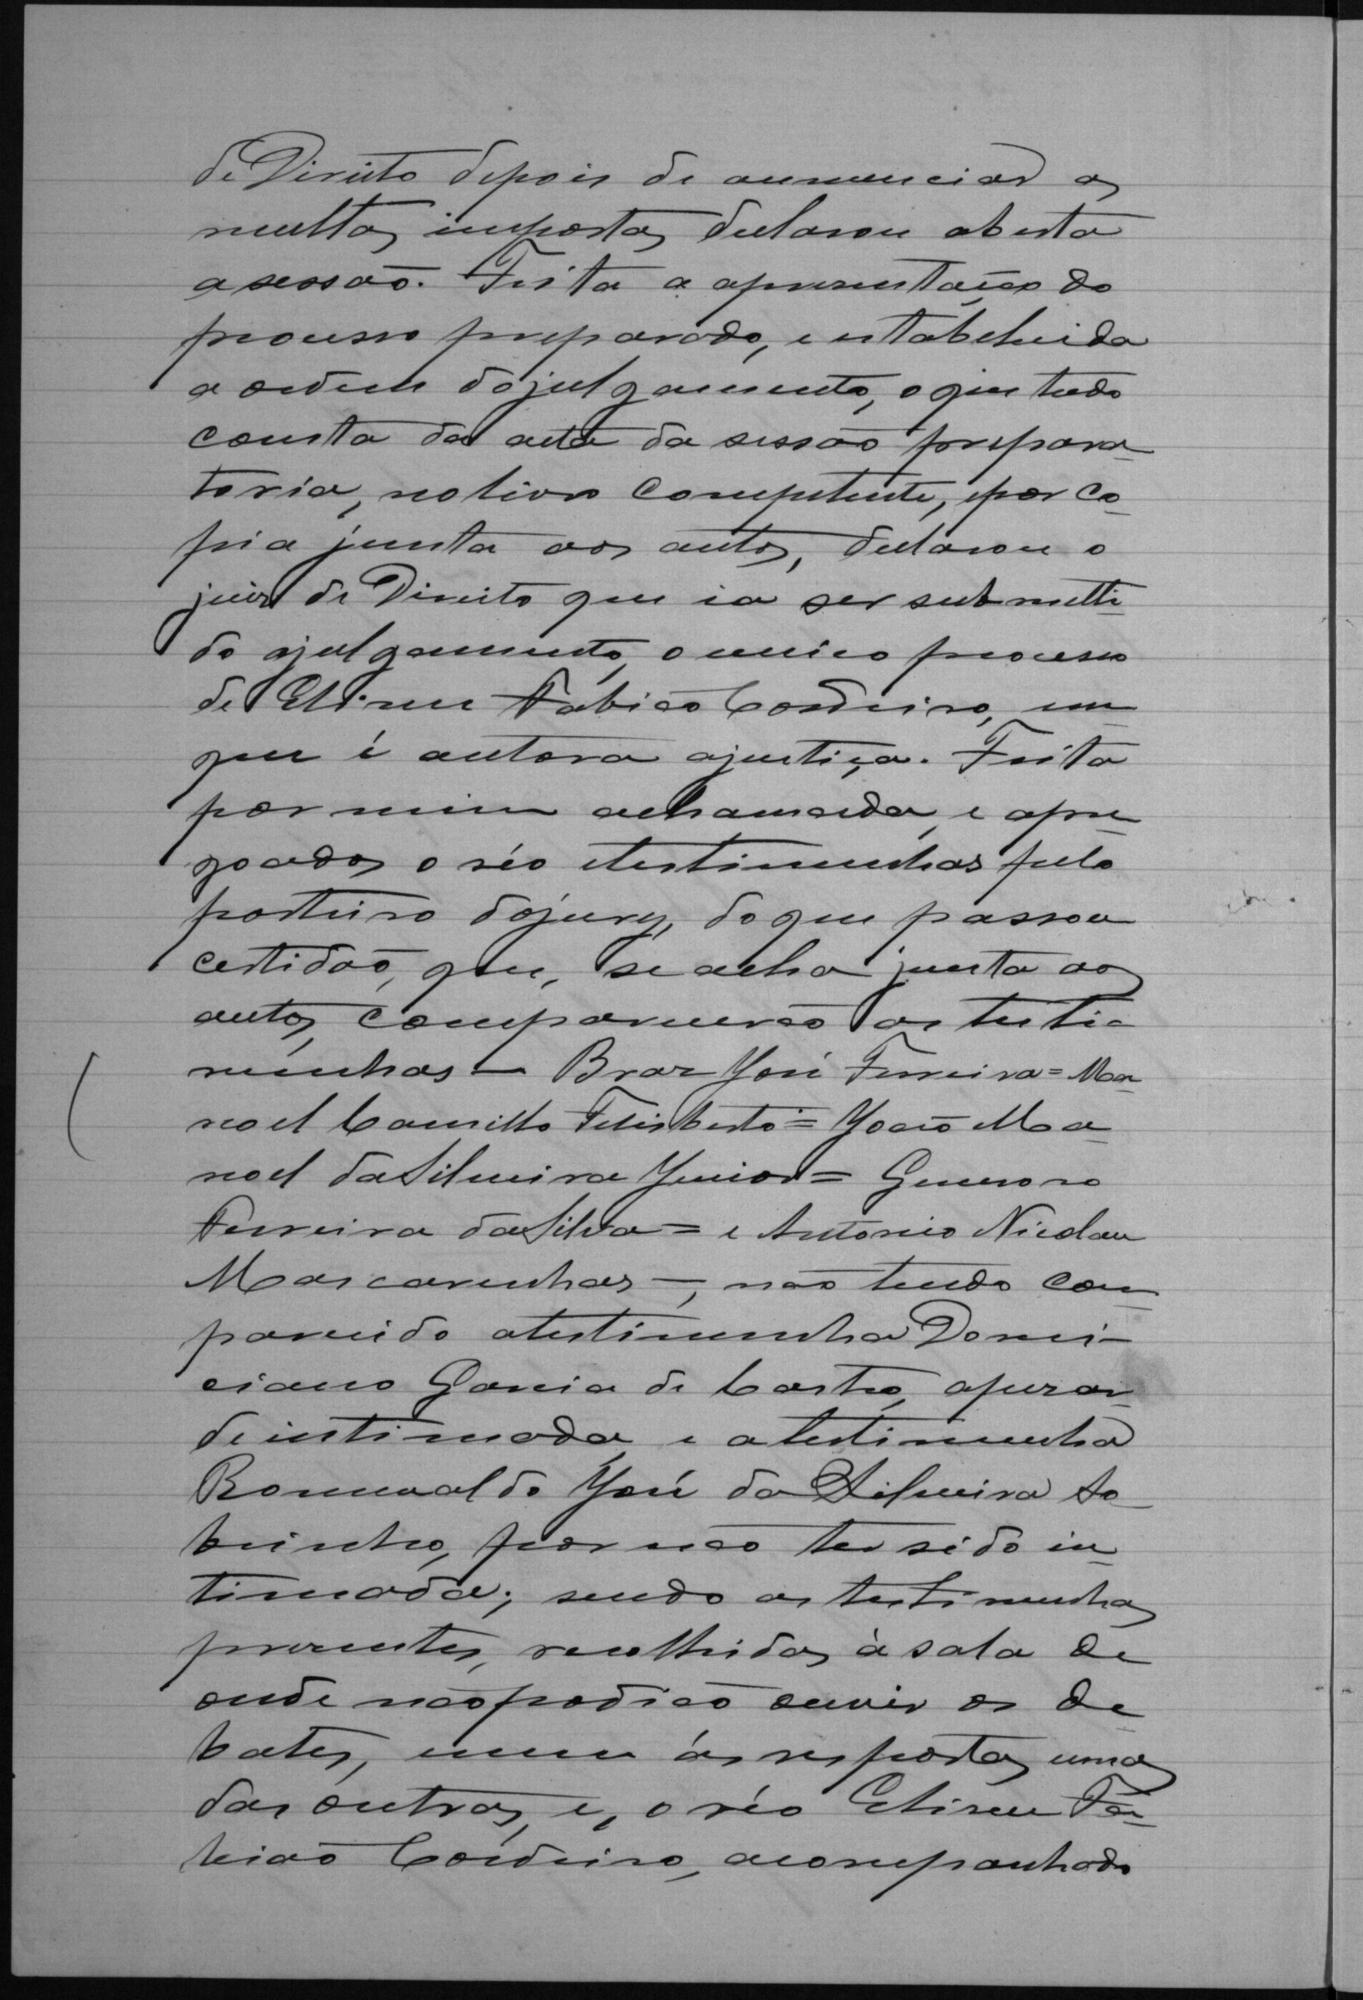 de Direito depois de annunciar as
multas impostas declarou aberta
a sessão. Feita a apresentação do
processo preparado, e estabelecida
a ordem do julgamento, o que tudo
consta da acta da sessão prepara-
toria, no livro competente, e por co-
pia junta aos autos, declarou o
juiz de Direito que ia ser submetti-
do a julgamento, o unico processo
de Eliseu Fabião Cordeiro, em
que é autora a justiça. Feita
por mim a chamada, e apre-
goados o réo e testimunhas pelo
porteiro do jury, do que passou
certidão, que, se acha junta aos
autos, comparecerão as testi-
munhas — Braz José Ferreira = Ma-
noel Camillo Felisberto = João Ma-
noel da Silveira Junior = Generoso
Ferreira da Silva = e Antonio Nicolau
Mascarenhas —, não tendo com-
parecido a testimunha Domi-
ciano Garcia de Castro, apezar
de intimada, e a testimunha
Romualdo José da Silveira So-
brinho, por não ter sido in-
timada; sendo as testimunhas
presentes, recolhidas á sala de
onde não podião ouvir os de-
bates, nem ás respostas umas
das outras, e, o réo Eliseu Fa-
bião Cordeiro, acompanhado